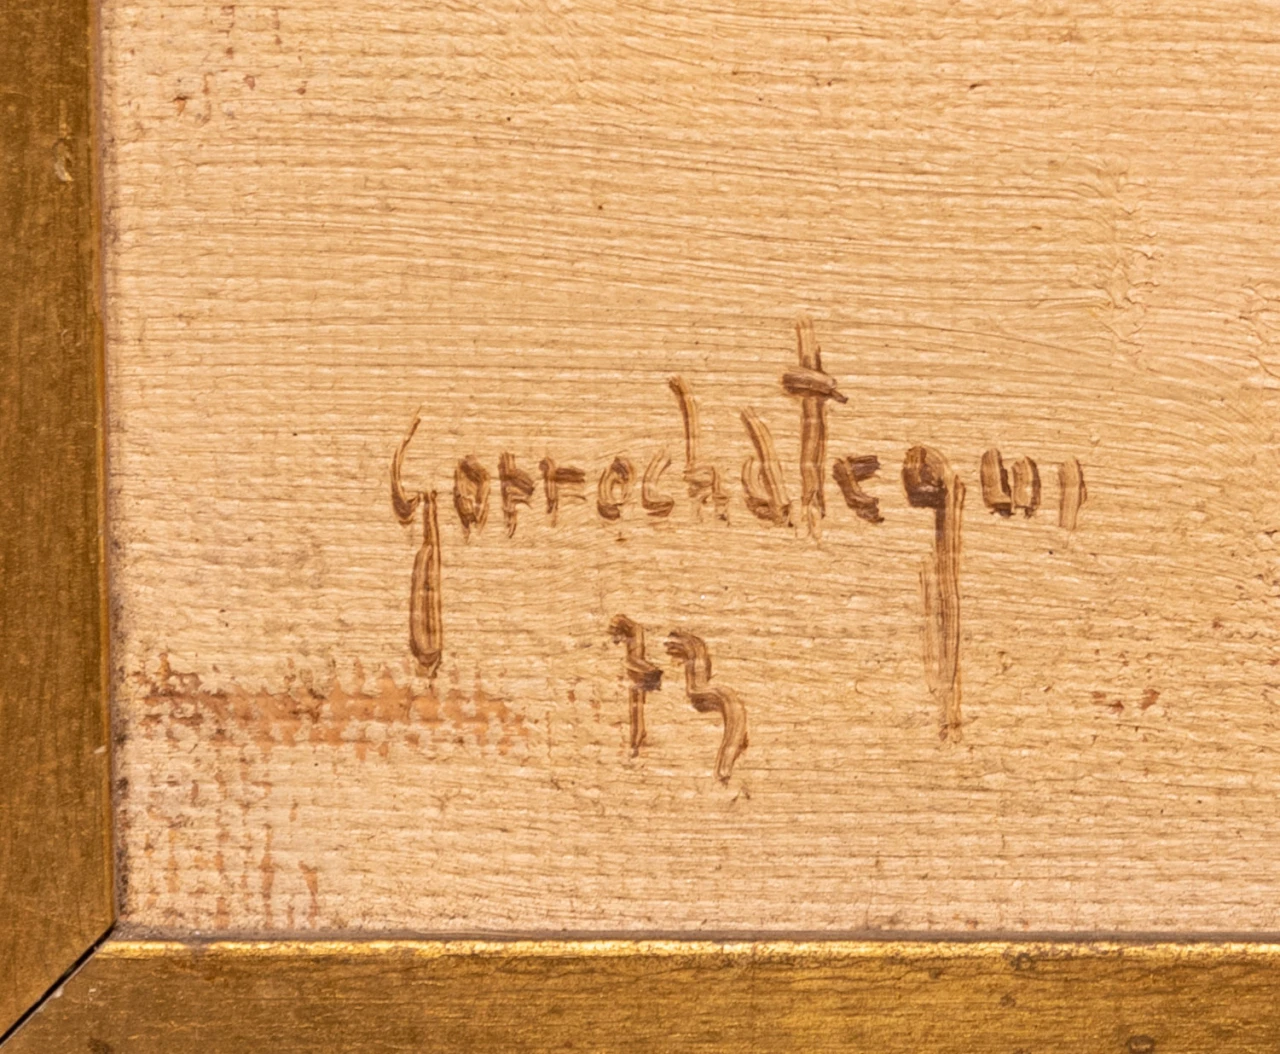 Gorrochategui
73